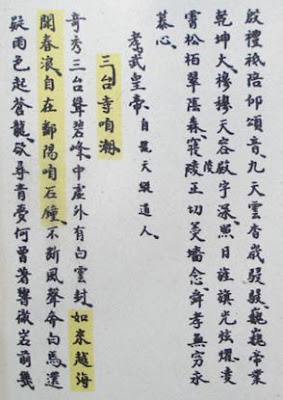 啟禮祗陪仰頌音九天雲杳歲駸駸巍巍帝業
乾坤大穆穆天容啟宇照日旌旗光炫耀凌
霄松柏翠陰森寢陵正切羮墻念舜孝無窮永
慕心
孝武皇帝自號天縱道人
三台寺咱潮
奇秀三台聳碧峰中虛外有白雲封如來越海
聞春浪自在鄱陽咱石鐘不斷風聲奔白馬還
疑雨色起蒼龍欲尋音何曾著響徹岩前幾